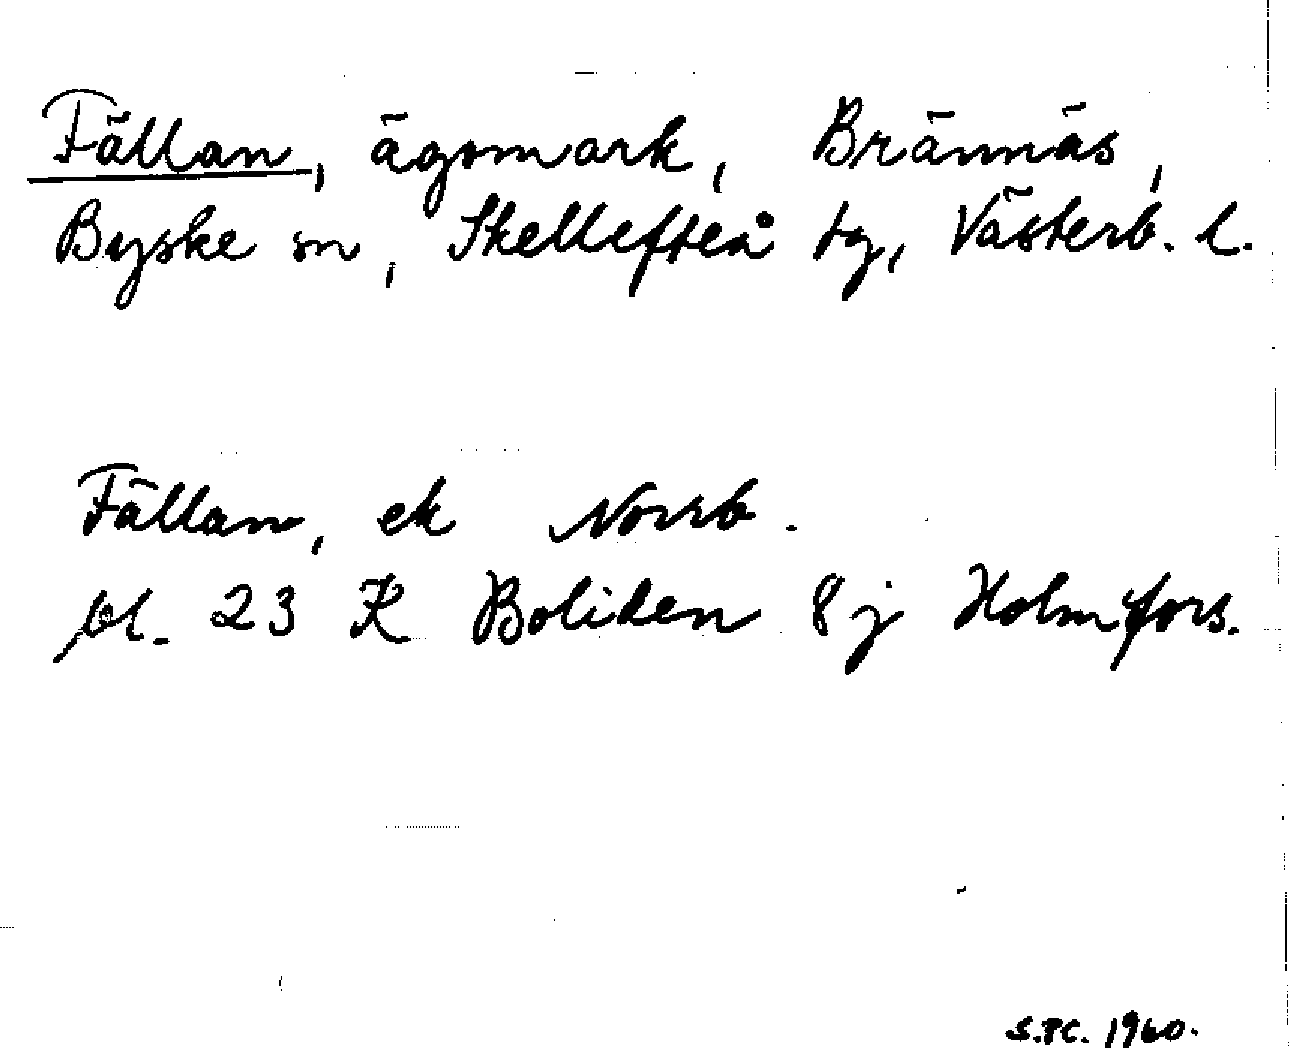 Fällan, ägomark, Brännäs,
Byske sn, Skellefteå tg, Västerb. l.
Fällan, ek Norrb.
bl. 23 K Boliden 8 j Holmfors.
S.PC. 1960.